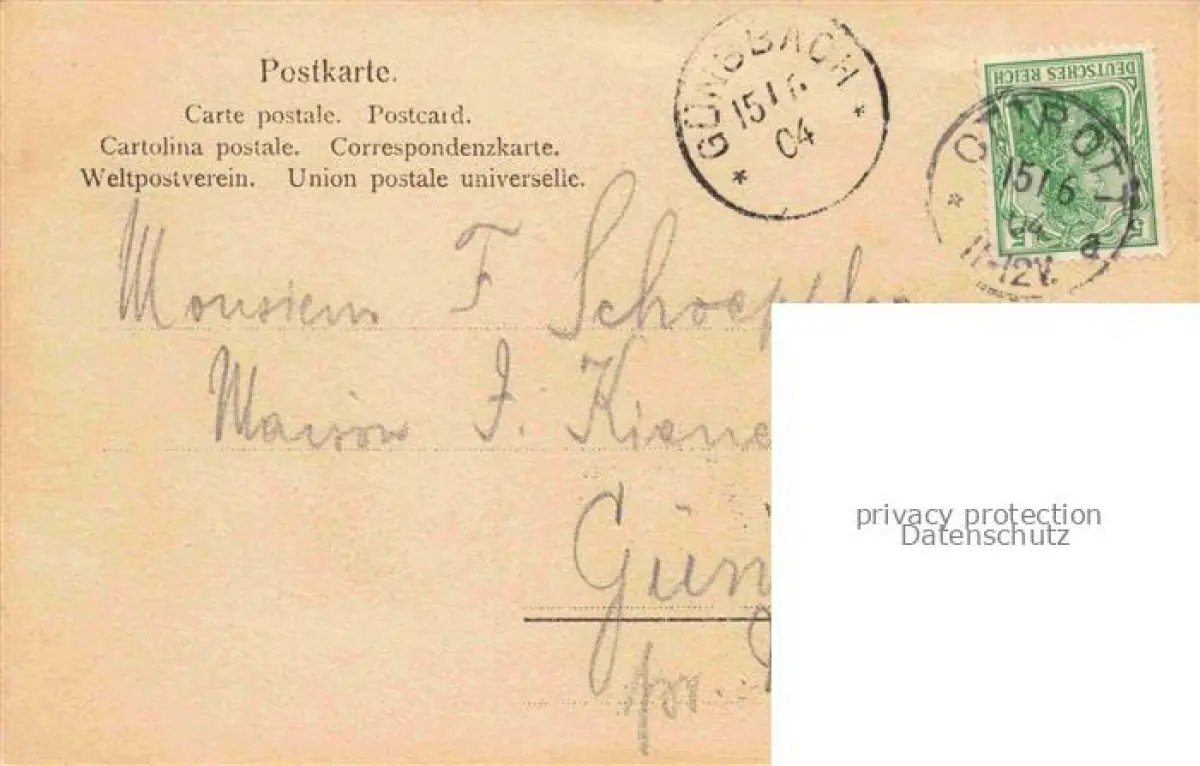 Postkarte.
Carte postale. Postcard.
Cartolina postale. Correspondenzkarte.
Weltpostverein. Union postale universelle.
GÜNSBACH
15/6
04
DEUTSCHES REICH
5 5
OTTROTT
15/6
04
a
11-12V.
Monsieur F Schoepfler
Maison J. Kiene
Gün
pr.
privacy protection
Datenschutz